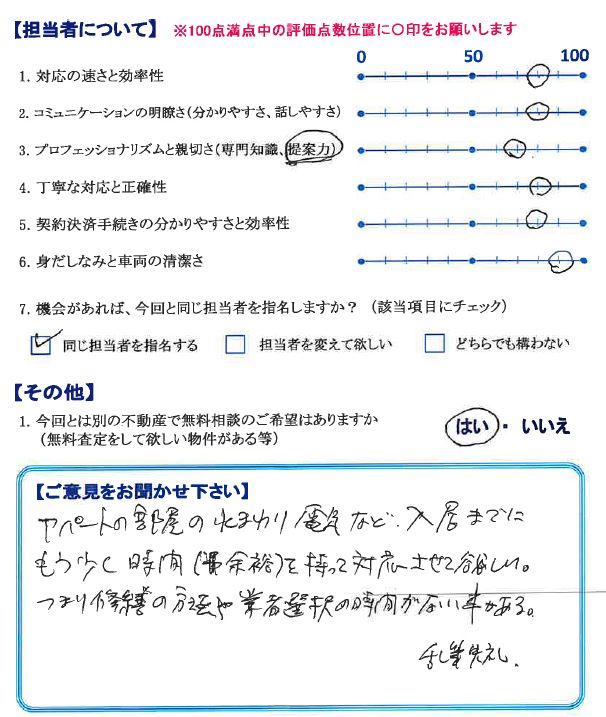 【担当者について】 ※100点満点中の評価点数位置に〇印をお願いします
0 50 100
1. 対応の速さと効率性
2. コミュニケーションの明瞭さ(分かりやすさ、話しやすさ)
3. プロフェッショナリズムと親切さ(専門知識、提案力)
4. 丁寧な対応と正確性
5. 契約決済手続きの分かりやすさと効率性
6. 身だしなみと車両の清潔さ
7. 機会があれば、今回と同じ担当者を指名しますか？ (該当項目にチェック)
同じ担当者を指名する 担当者を変えて欲しい どちらでも構わない
【その他】
1. 今回とは別の不動産で無料相談のご希望はありますか
(無料査定をして欲しい物件がある等)
はい ・ いいえ
【ご意見をお聞かせ下さい】
アパートの部屋の水まわり電気など、入居までに
もう少し時間(余裕)を持って対応させて欲しい。
つまり修繕の方法や業者選択の時間がない事がある。
乱筆失礼。